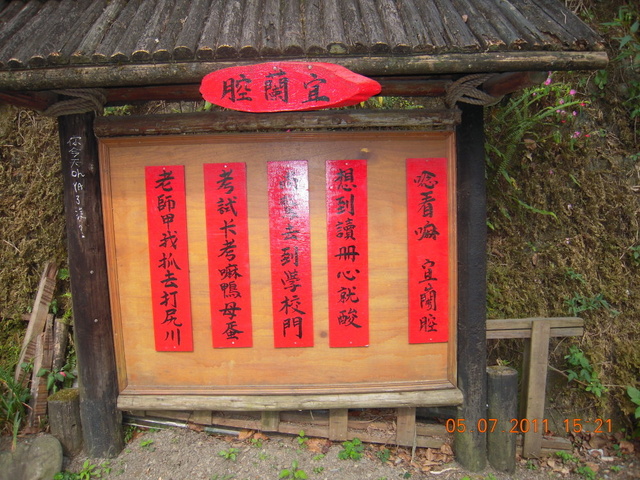 宜蘭腔
唸看嘛 宜蘭腔
想到讀冊心就酸
去到學校門
考試卡考嘛鴨母蛋
老師甲我抓去打尻川
你今天Oh
05.07.2011 15:21